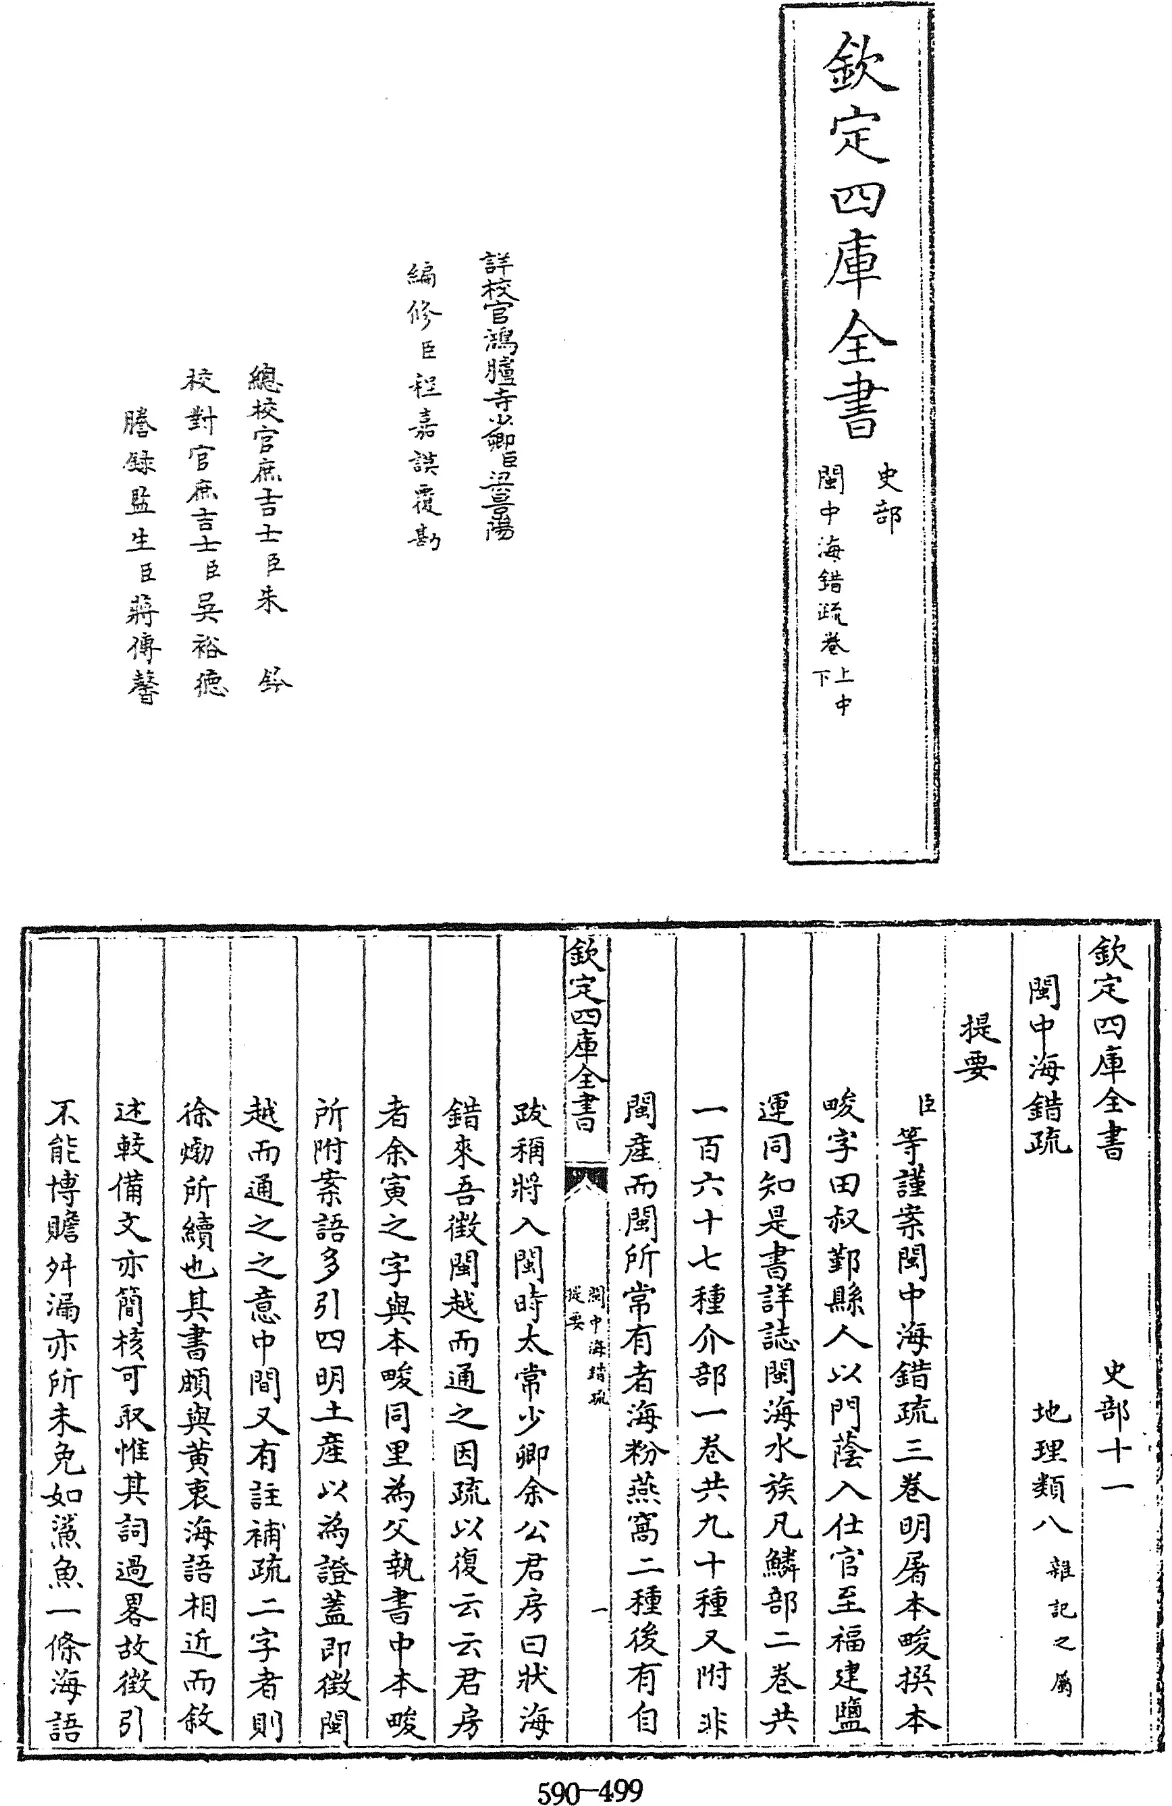 欽定四庫全書
史部
閩中海錯疏卷上中下
詳校官鴻臚寺少卿臣梁景陽
編修臣程嘉謨覆勘
總校官庶吉士臣朱鈐
校對官庶吉士臣吳裕德
謄録監生臣蔣傳馨
欽定四庫全書 史部十一
閩中海錯疏 地理類八雜記之屬
提要
臣等謹案閩中海錯疏三卷明屠本畯撰本
畯字田叔鄞縣人以門蔭入仕官至福建鹽
運同知是書詳誌閩海水族凡鱗部二卷共
一百六十七種介部一卷共九十種又附非
閩產而閩所常有者海粉燕窩二種後有自
欽定四庫全書 閩中海錯疏提要 一
跋稱將入閩時太常少卿余公君房曰狀海
錯來吾徴閩越而通之因疏以復云云君房
者余寅之字與本畯同里為父執書中本畯
所附案語多引四明土產以為證蓋即徴閩
越而通之之意中間又有註補疏二字者則
徐𤊹所續也其書頗與黄衷海語相近而敘
述較備文亦簡核可取惟其詞過畧故徴引
不能博贍舛漏亦所未免如鯊魚一條海語
590-499